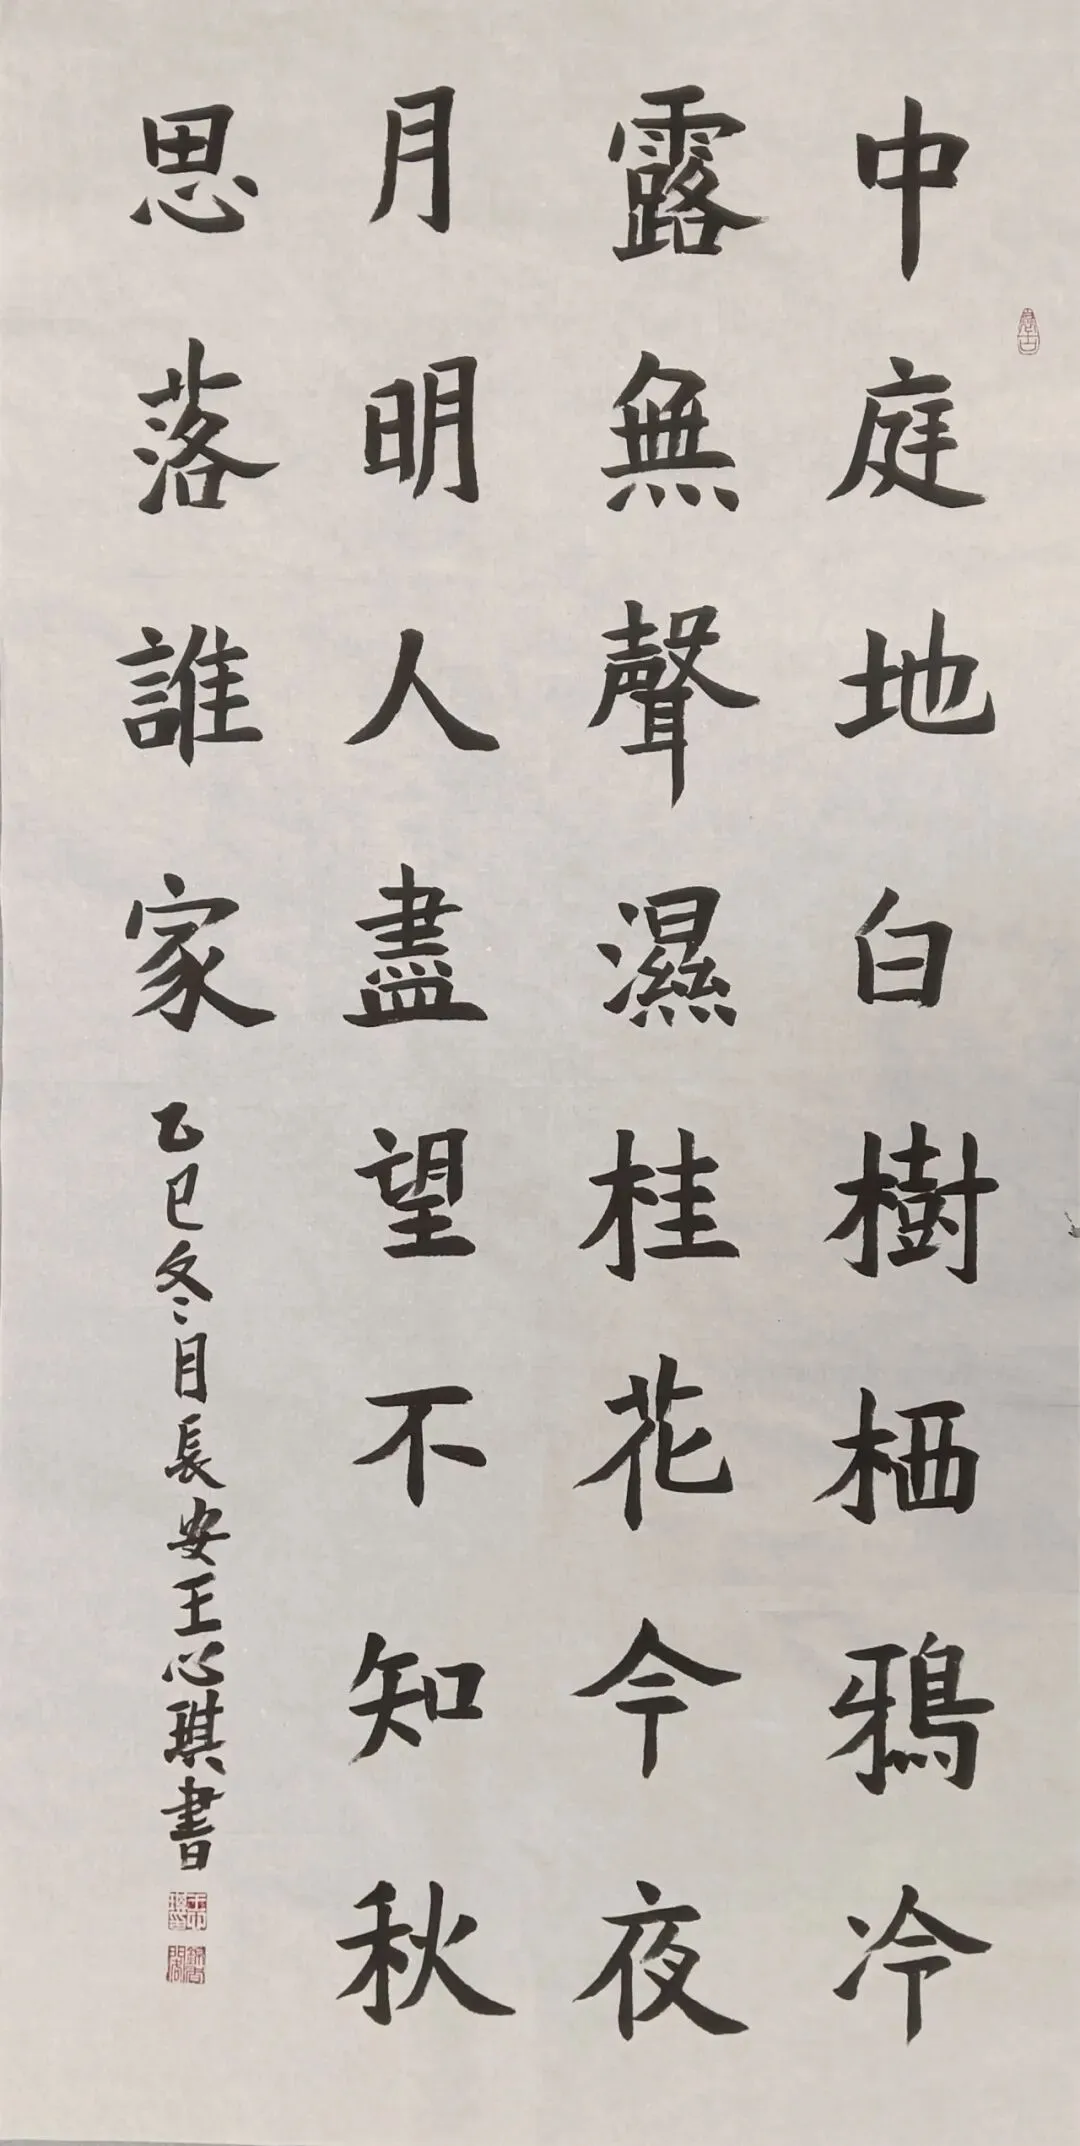 中庭地白樹栖鴉冷
露無聲濕桂花今夜
月明人盡望不知秋
思落誰家
乙巳冬月長安王心琪書